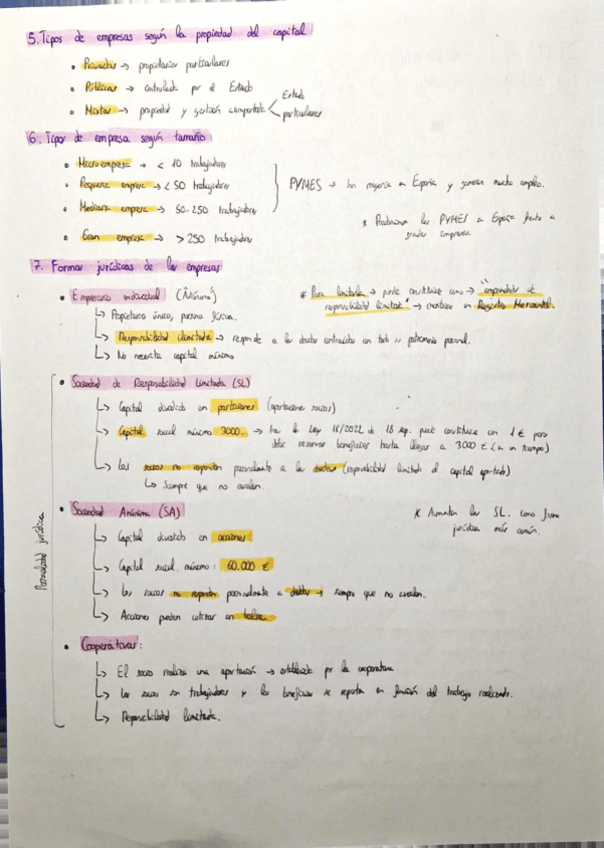 5. Tipos de empresas según la propiedad del capital
• Privadas → propietarios particulares
• Públicas → controlada por el Estado
• Mixtas → propiedad y gestión compartida < Estado
particulares
6. Tipos de empresa según tamaño
• Microempresa → < 10 trabajadores
• Pequeña empresa → < 50 trabajadores
• Mediana empresa → 50-250 trabajadores
} PYMES → son mayoría en España y generan mucho empleo.
* Predominan las PYMES en España frente a
grandes empresas.
• Gran empresa → > 250 trabajadores
7. Formas jurídicas de las empresas
• Empresario individual (Autónomo)
↳ Propietario único, persona física.
↳ Responsabilidad ilimitada → responde a las deudas contraídas con todo su patrimonio personal.
↳ No necesita capital mínimo
* Para limitarla → puede constituirse como → "emprendedor de
responsabilidad limitada" → inscribirse en Registro Mercantil.
Personalidad jurídica
• Sociedad de Responsabilidad Limitada (SL)
↳ Capital dividido en participaciones (aportaciones socios)
↳ Capital social mínimo 3000. → tras la Ley 18/2022 de 18 sep. puede constituirse con 1 € pero
debe reservar beneficios hasta llegar a 3000 € (en un tiempo)
↳ Los socios no responden personalmente a las deudas (responsabilidad limitada al capital aportado)
↳ Siempre que no avalen.
• Sociedad Anónima (SA)
↳ Capital dividido en acciones
↳ Capital social mínimo: 60.000 €
↳ Los socios no responden personalmente a deudas → siempre que no avalen.
↳ Acciones pueden cotizar en bolsa.
* Aumentan las SL. como forma
jurídica más común.
• Cooperativas:
↳ El socio realiza una aportación → establecida por la cooperativa
↳ Los socios son trabajadores y los beneficios se reparten en función del trabajo realizado.
↳ Responsabilidad limitada.